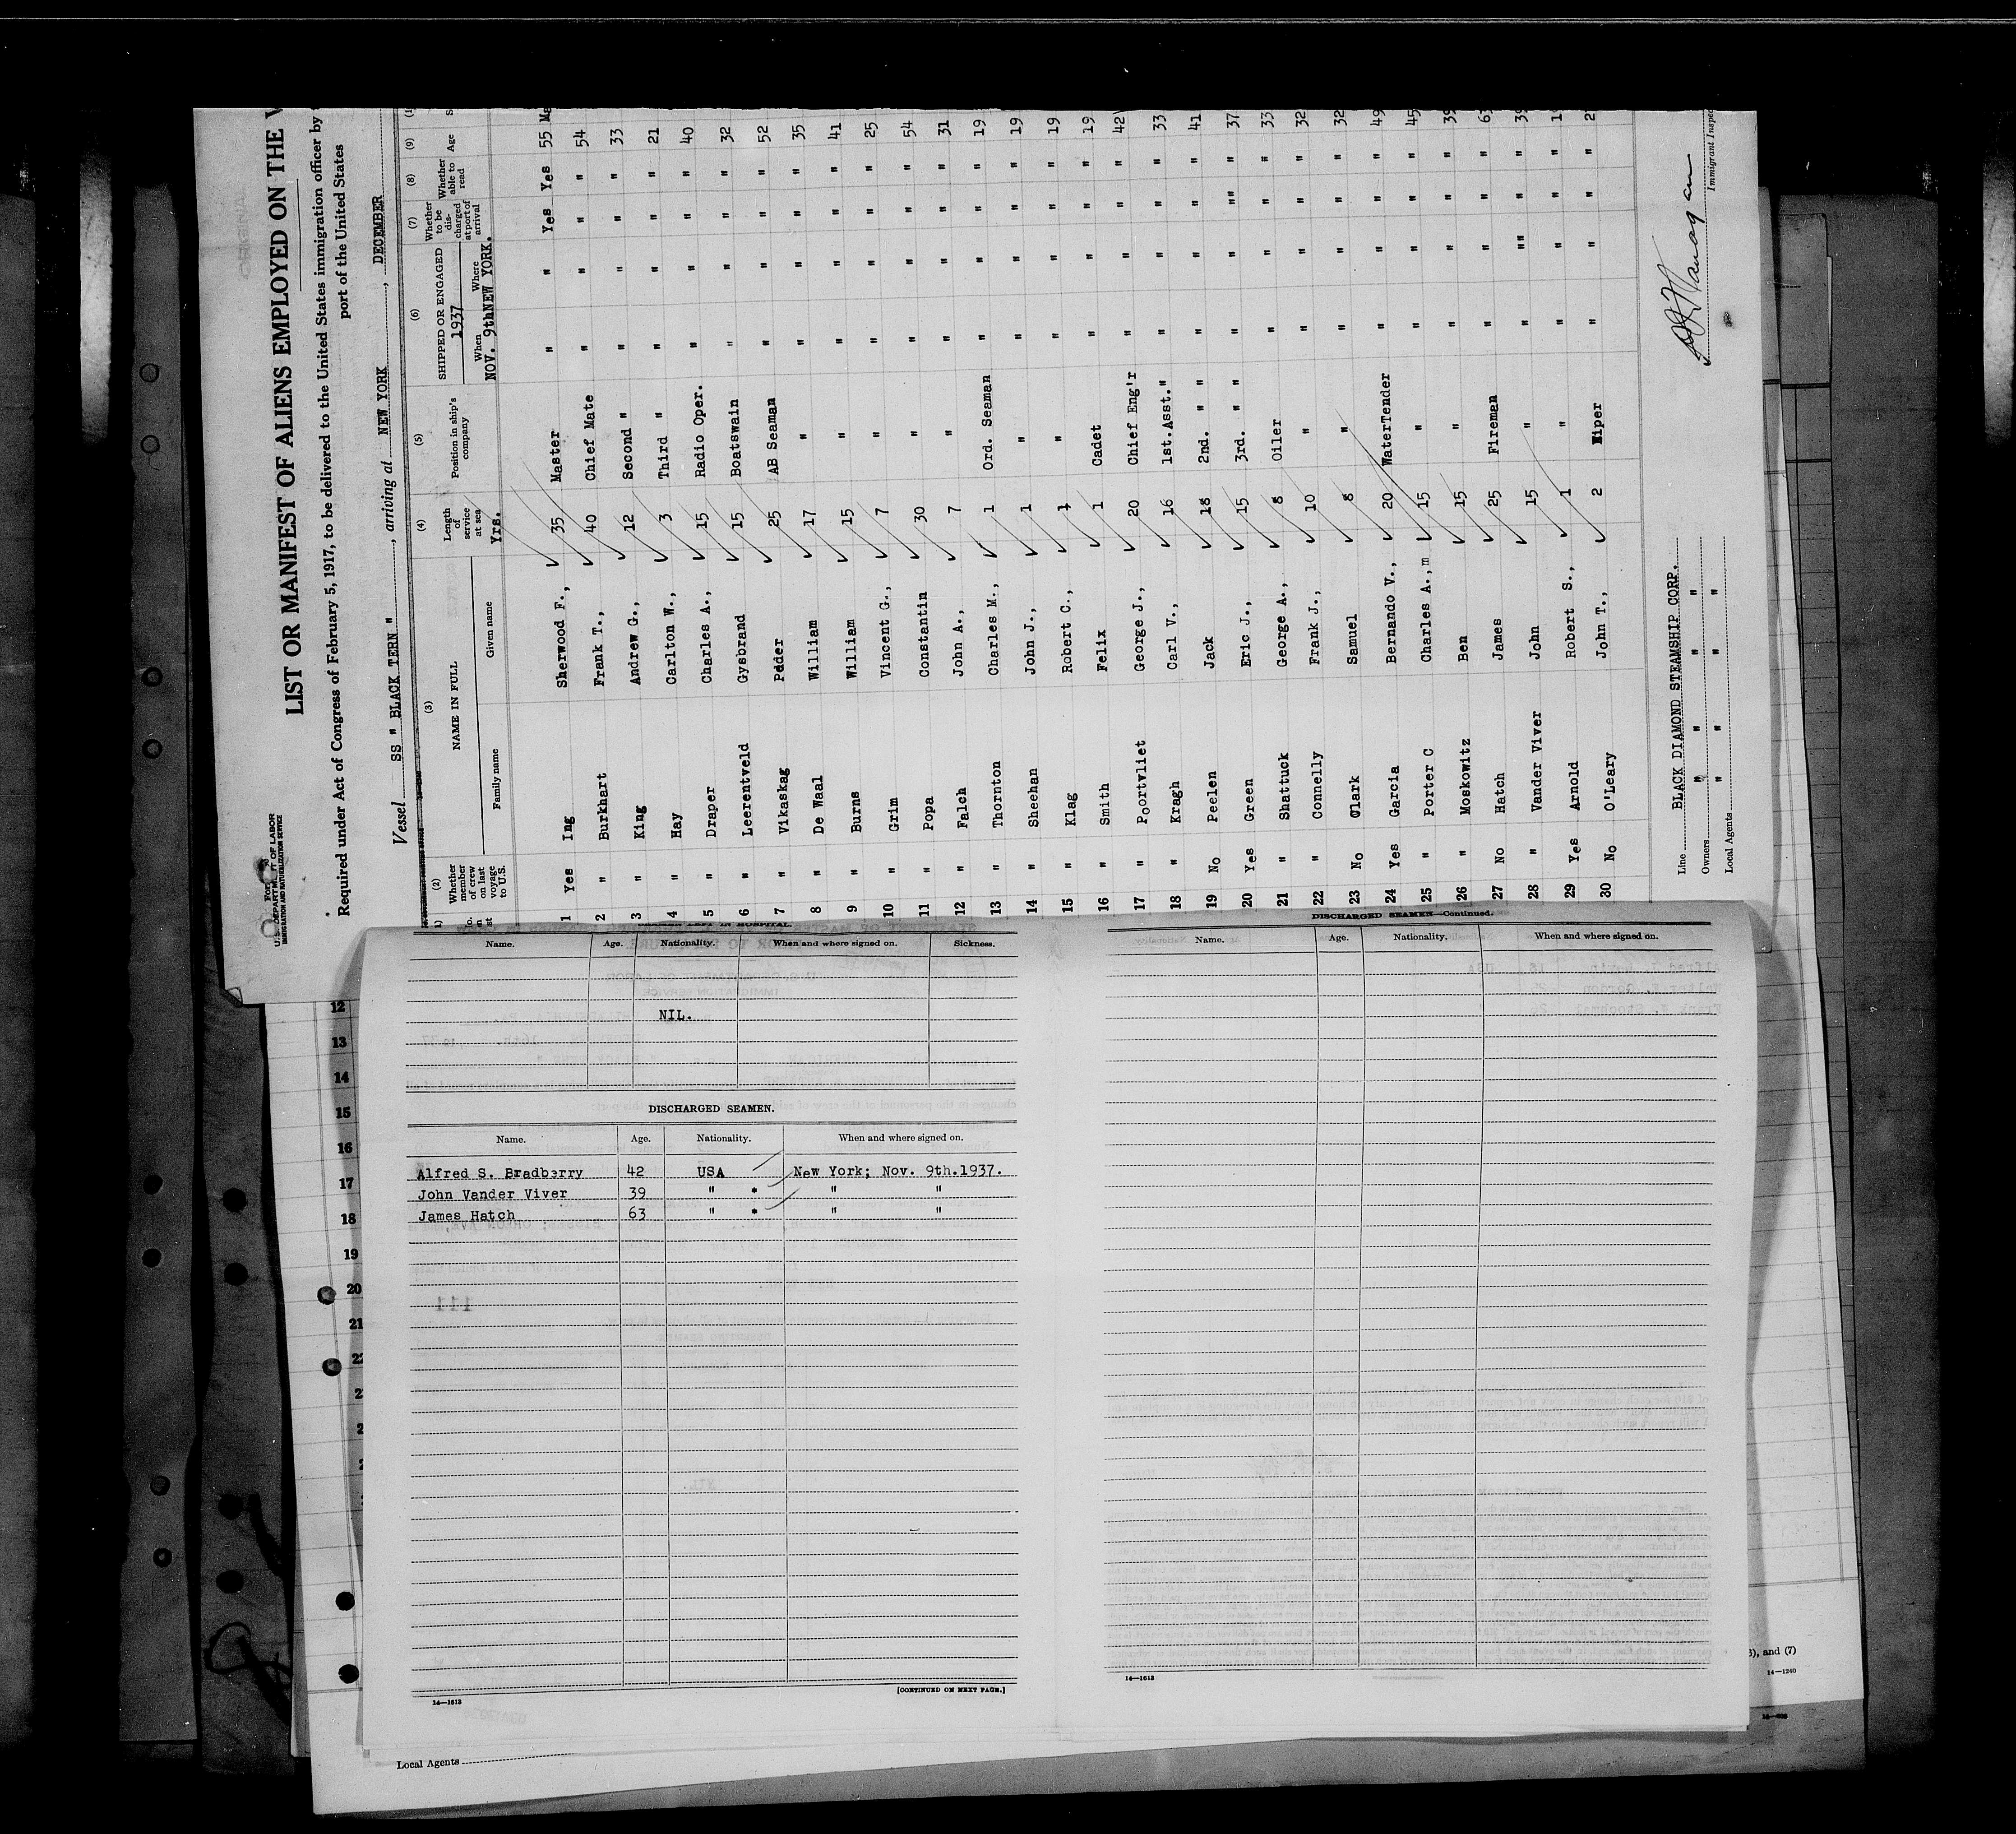 U.S. DEPARTMENT OF LABOR
IMMIGRATION AND NATURALIZATION SERVICE
LIST OR MANIFEST OF ALIENS EMPLOYED ON THE
Required under Act of Congress of February 5, 1917, to be delivered to the United States immigration officer by
port of the United States
Vessel SS " BLACK TERN ", arriving at NEW YORK, DECEMBER
(2) (3) (4) (5) (6) (7) (8) (9)
Whether member of crew on last voyage to U.S. NAME IN FULL Family name Given name Length of service at sea Yrs. Position in ship's company SHIPPED OR ENGAGED 1937 When Where Whether to be discharged at port of arrival Whether able to read Age
NOV. 9th NEW YORK.
1 Yes Ing Sherwood F., 35 Master " " Yes Yes 55
2 " Burkhart Frank T., 40 Chief Mate " " " " 54
3 " King Andrew G., 12 Second " " " " " 33
4 " Hay Carlton W., 3 Third " " " " " 21
5 " Draper Charles A., 15 Radio Oper. " " " " 40
6 " Leerentveld Gysbrand 15 Boatswain " " " " 32
7 " Vikaskag Peder 25 AB Seaman " " " " 52
8 " De Waal William 17 " " " " " 35
9 " Burns William 15 " " " " " 41
10 " Grim Vincent G., 7 " " " " " 25
11 " Popa Constantin 30 " " " " " 54
12 " Falch John A., 7 " " " " " 31
13 " Thornton Charles M., 1 Ord. Seaman " " " " 19
14 " Sheehan John J., 1 " " " " " 19
15 " Klag Robert C., 1 " " " " " 19
16 " Smith Felix 1 Cadet " " " " 19
17 " Poortvliet George J., 20 Chief Eng'r " " " " 42
18 " Kragh Carl V., 16 1st.Asst." " " " " 33
19 No Peelen Jack 18 2nd. " " " " " " 41
20 Yes Green Eric J., 15 3rd. " " " " "" " 37
21 " Shattuck George A., 8 Oiler " " " " 33
22 " Connelly Frank J., 10 " " " " " 32
23 No Clark Samuel 8 " " " " " 32
24 Yes Garcia Bernando V., 20 WaterTender " " " " 49
25 " Porter C Charles A.,m 15 " " " " " 45
26 " Moskowitz Ben 15 " " " " " 39
27 No Hatch James 25 Fireman " " " " 63
28 " Vander Viver John 15 " " "" " " 39
29 Yes Arnold Robert S., 1 " " " " "
30 No O'Leary John T., 2 Wiper " " " "
Line BLACK DIAMOND STEAMSHIP CORP.
Owners " " " "
Local Agents " " " "
Immigrant Inspec
SEAMEN LEFT IN HOSPITAL.
Name. Age. Nationality. When and where signed on. Sickness.
NIL.
DISCHARGED SEAMEN.
Name. Age. Nationality. When and where signed on.
Alfred S. Bradberry 42 USA New York; Nov. 9th.1937.
John Vander Viver 39 " * " "
James Hatch 63 " * " "
[CONTINUED ON NEXT PAGE.]
14—1613
DISCHARGED SEAMEN—Continued.
Name. Age. Nationality. When and where signed on.
14—1613
12
13
14
15
16
17
18
19
20
21
22
), and (7)
14—1240
Local Agents